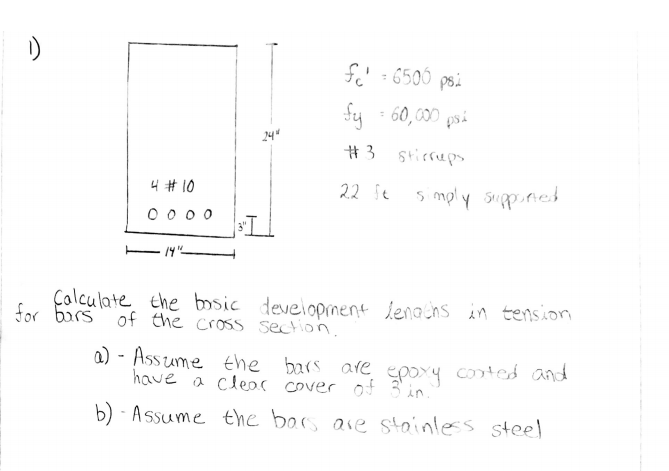 1)
fc' = 6500 psi
fy = 60,000 psi
24"
# 3 stirrups
4 # 10
22 ft simply supported
3"
14"
Calculate the basic development lengths in tension
for bars of the cross section.
a) - Assume the bars are epoxy coated and
have a clear cover of 3 in.
b) - Assume the bars are stainless steel